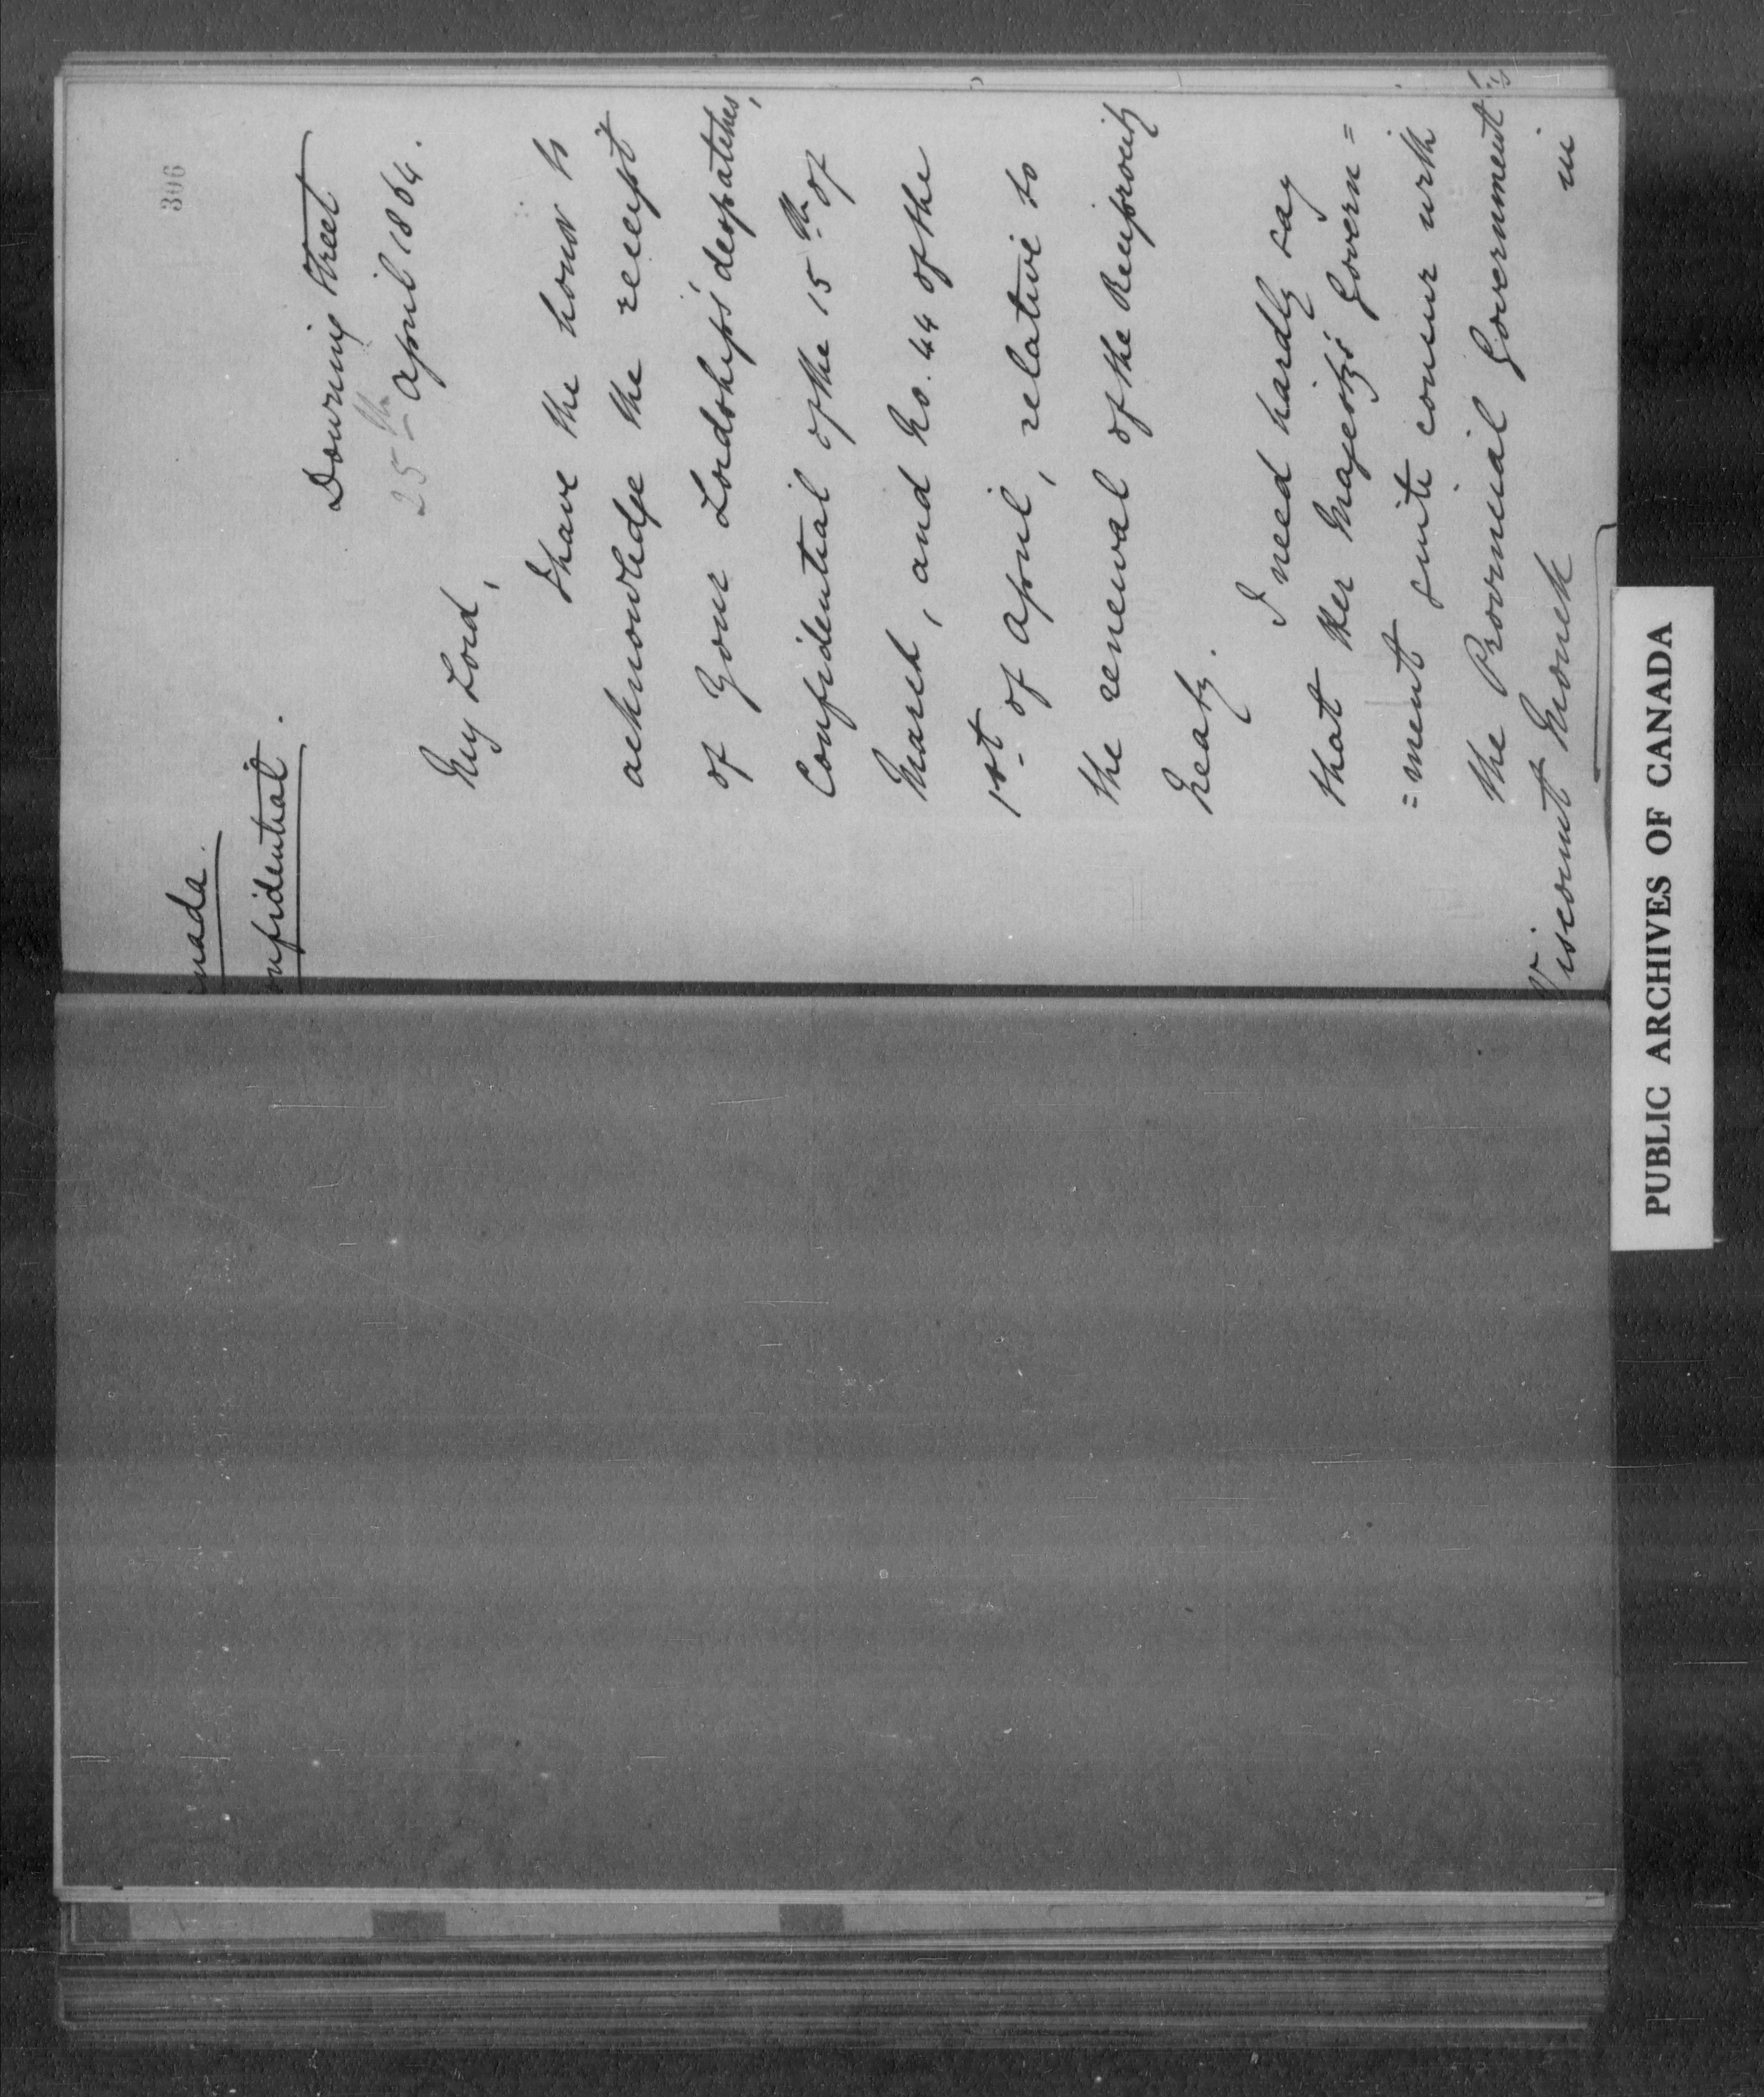 306
nada.
onfidential.
Downing Street
25th April 1864.
My Lord,
I have the honor to
acknowledge the receipt
of Your Lordship's despatches,
Confidential of the 15th of
March, and No. 44 of the
1st of April, relative to
the renewal of the Reciprocity
Treaty.
I need hardly say
that Her Majesty's Govern=
=ment quite concur with
the Provincial Government
in
Viscount Monck
PUBLIC ARCHIVES OF CANADA